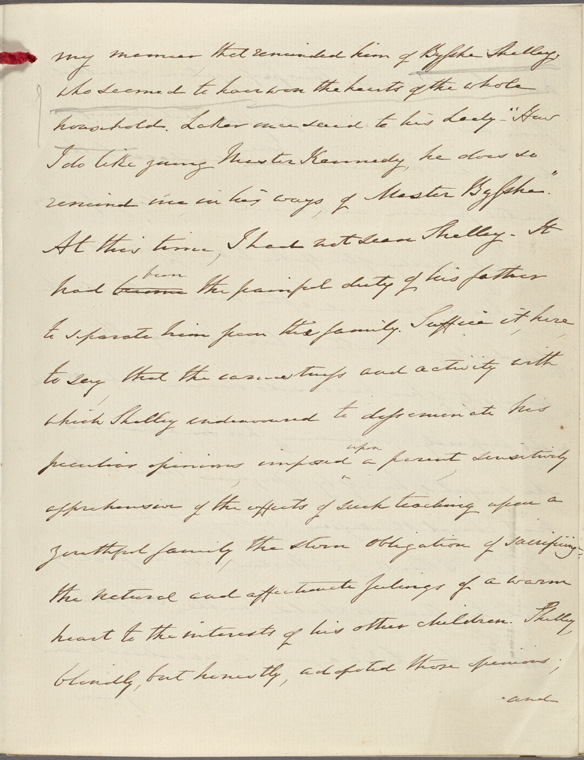 my manner that reminded him of Bysshe Shelley,
who seemed to have won the hearts of the whole
household. Laker once said to his lady - "How
I do like young Master Kennedy, he does so
remind me in his ways, of Master Bysshe."
At this time, I had not seen Shelley - It
had become been the painful duty of his father
to separate him from the family. Suffice it here,
to say, that the earnestness and activity with
which Shelley endeavoured to disseminate his
peculiar opinions imposed upon a parent sensitively
apprehensive of the effects of such teaching upon a
youthful family, the stern obligation of sacrificing
the natural and affectionate feelings of a warm
heart to the interests of his other children. Shelley
blindly, but honestly, adopted those opinions;
- and